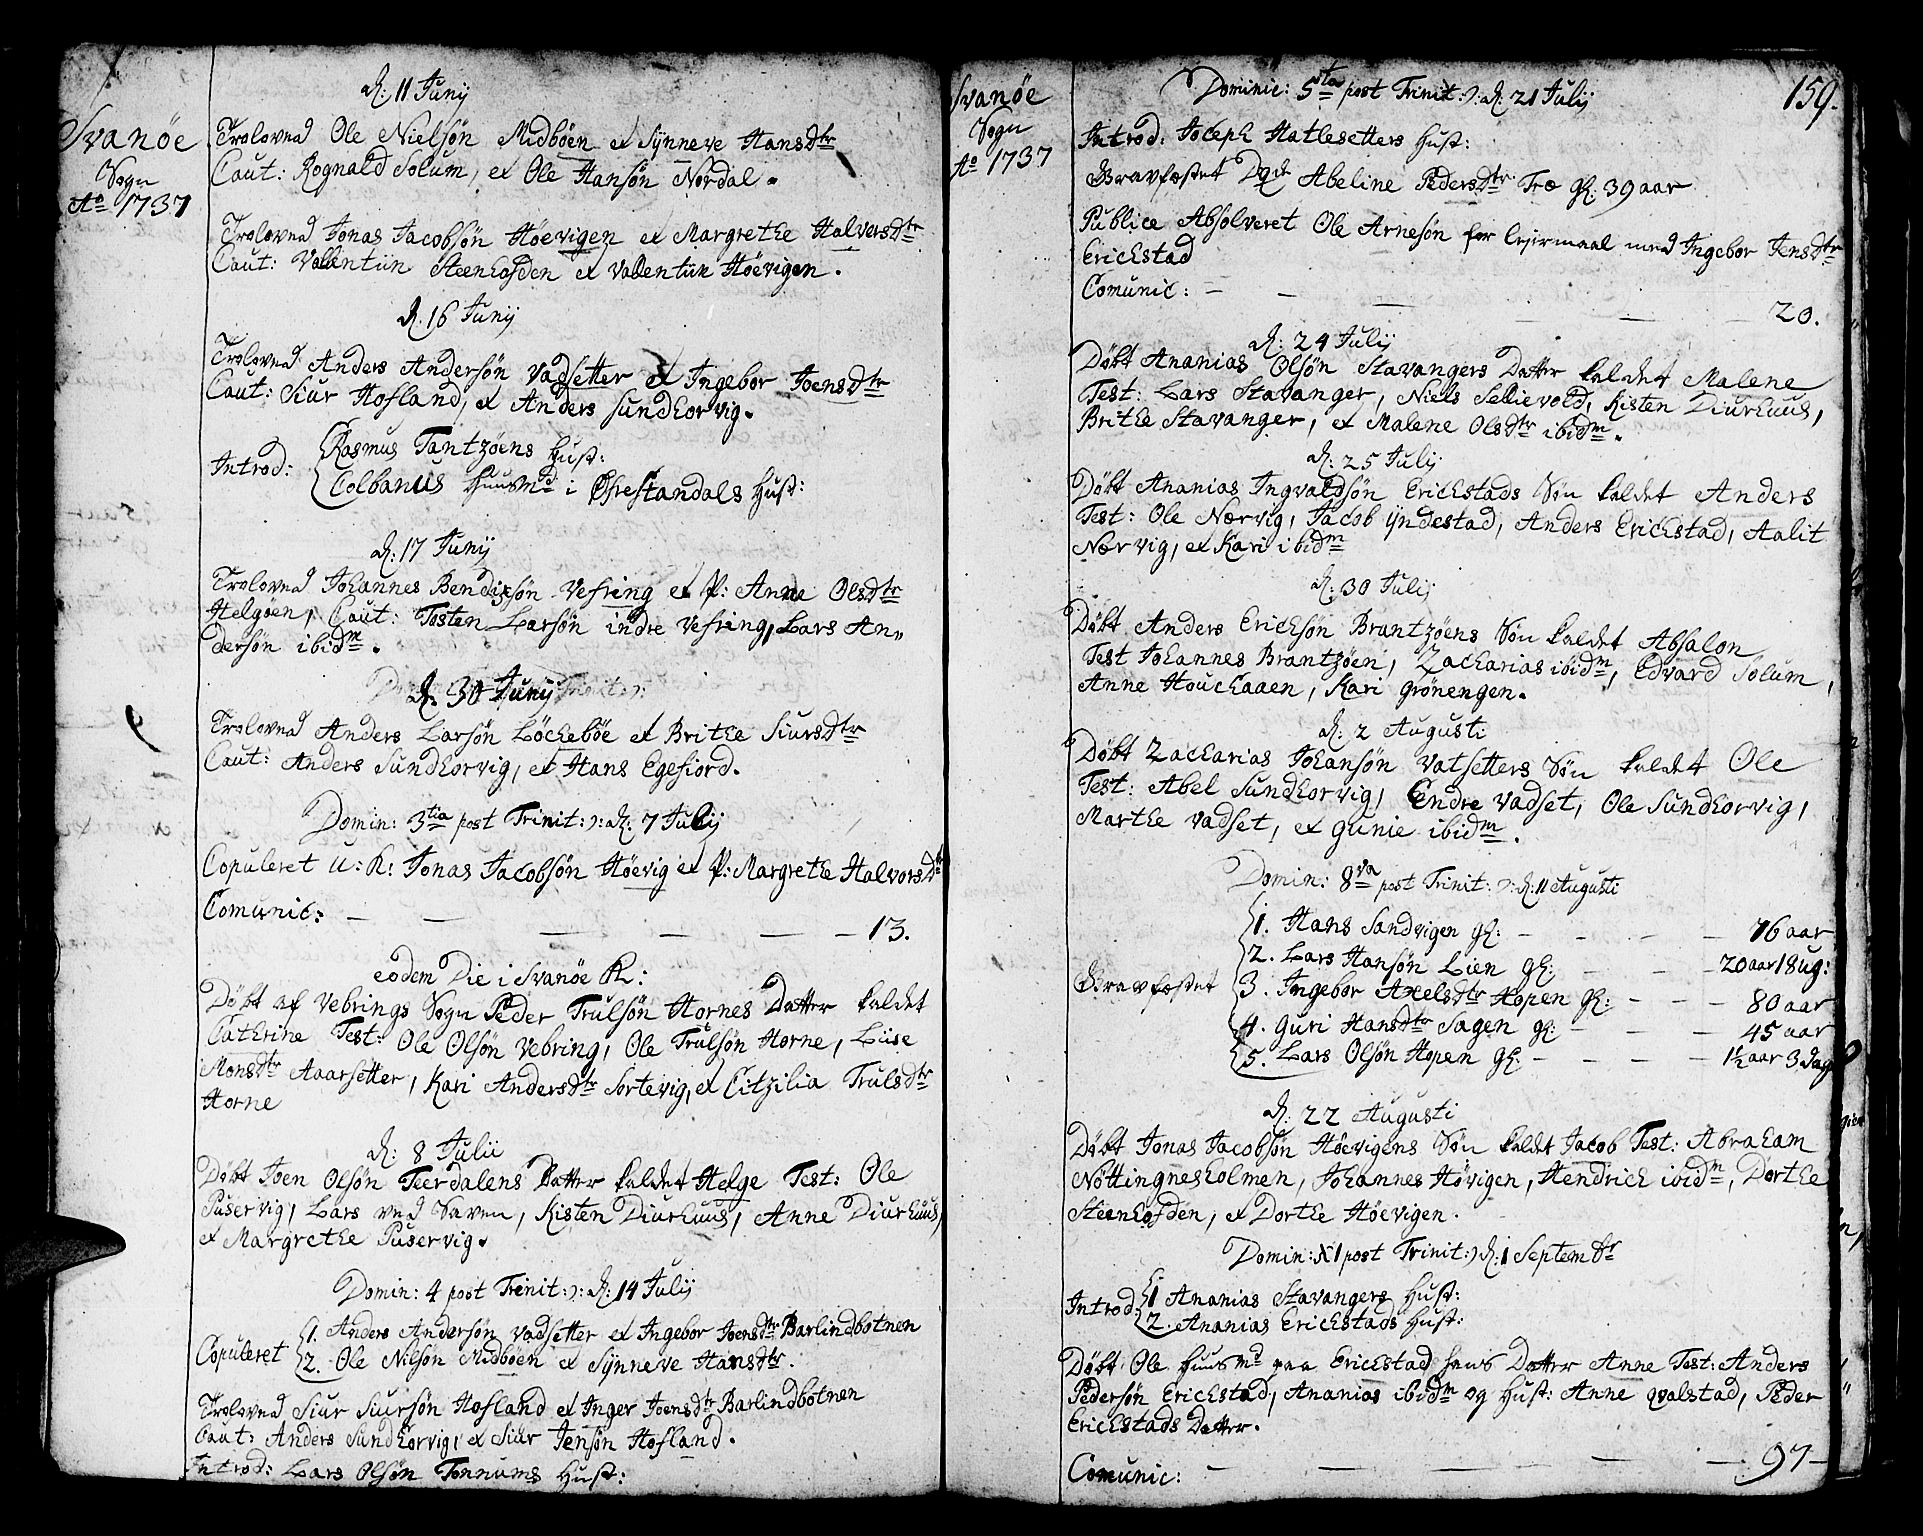 Svanöe
Sogn
Ao 1737
d. 11 Junij
Troloved Ole Nielsön Midböen et Synneve Hansdtr
Caut: Rognald Solum, et Ole Hansön Nordal.
Troloved Jonas Jacobsön Höevigen et Margrethe Halversdtr
Caut: Valentiin Steenhofden et Valentiin Höevigen.
d. 16 Junij
Troloved Anders Andersön Vadsetter et Ingebor Joensdtr
Caut: Siur Hofland, et Anders Sundhorvig.
Introd: Rasmus Tantzöens Hust:
Colbanus Huusmd i Öfrestandals Hust:
d: 17 Junij
Troloved Johannes Bendixsön Vefring et P: Anne Olsdtr
Helgöen, Caut: Tosten Larsön indre Vefring, Lars An„
dersön ibidm.
d. 30 Junij
Troloved Anders Larsön Löcheböe et Brithe Siursdtr
Caut: Anders Sundhorvig, et Hans Egefiord.
Domin: 3tia post Trinit: ɔ: d: 7 Julij
Copuleret U: K: Jonas Jacobsön Höevig et P: Margrethe Halvorsdtr
Comunic: — — — — — — 13.
eodem Die i Svanöe K:
Döbt af Vebrings Sogn Peder Trulsön Hornes Datter kaldet
Cathrine Test: Ole Olsön Vebring, Ole Trulsön Horne, Liise
Monsdtr Aaarsetter, Kari Andersdtr Sortevig, et Citzilia Trulsdtr
Horne
d: 8 Julii
Döbt Joen Olsön Teerdalens Datter kaldet Helge Test: Ole
Puservig, Lars ved Saven, Kisten Diurhuus, Anne Diurhuus,
et Margrethe Puservig.
Domin: 4 post Trinit: ɔ: d: 14 Julij
Copuleret 1. Anders Andersön Vadsetter et Ingebor Joensdtr Barlindbotnen
2. Ole Nilsön Midböen et Synneve Hansdtr.
Troloved Siur Siursön Hofland et Inger Joensdtr Barlindbotnen
Caut: Anders Sundhorvig, et Siur Jensön Hofland.
Introd: Lars Olsön Tonnums Hust:
Svanöe
Sogn
Ao 1737
159.
Dominic: 5ta post Trinit: ɔ: d: 21 Julij
Introd: Joseph Hatlesetters Hust:
Gravfæstet Abeline Pedersdtr Træ gl: 39 aar
Publice Absolveret Ole Arnesön for leyermaal med Ingebor Jensdtr
Erichstad
Comunic: — — — — — 20.
d. 24 Julij
Döbt Ananias Olsön Stavangers Datter kaldet Malene
Test: Lars Stavanger, Niels Sellevold, Kisten Diurhuus,
Brithe Stavanger, et Malene Olsdtr ibidm.
d: 25 Julij
Döbt Ananias Ingvaldsön Erichstads Sön kaldet Anders
Test: Ole Nærvig, Jacob Yndestad, Anders Erichstad, Aalit
Nærvig, et Kari ibidm
d: 30 Julij
Döbt Anders Erichsön Brantzöens Sön kaldet Absalon
Test Johannes Brantzöen, Zacharias ibidm, Edvard Solum,
Anne Houchaaen, Kari Grönengen.
d: 2 Augusti
Döbt Zacharias Johansön Vatsetters Sön kaldet Ole
Test: Abel Sundhorvig, Endre Vadset, Ole Sundhorvig,
Marthe Vadset, et Gunie ibidm.
Domin: 8va post Trinit: ɔ: d: 11 Augusti
1. Hans Sandvigen gl: — — — — 76 aar
2. Lars Hansön Lien gl: — — — — 20 aar 18 ug:
Gravfæstet 3. Ingebor Axelsdtr Hopen gl: — — — 80 aar
4. Guri Hansdtr Sagen gl: — — — 45 aar
5. Lars Olsön Hopen gl: — — — — 1½ aar 3 dag
d: 22 Augusti
Döbt Jonas Jacobsön Höevigens Sön kaldet Jacob Test: Abraham
Nöttingnesholmen, Johannes Hövigen, Hendrich ibidm, Dorthe
Steenhofden, et Dorthe Höevigen.
Domin: XI post Trinit: ɔ: d: 1 Septembr
Introd: 1 Ananias Stavangers Hust:
2. Ananias Erichstads Hust:
Döbt Ole Huusmd paa Erichstad hans Datter Anne Test: Anders
Pedersön Erichstad, Ananias ibidm og Hust: Anne Qvalstad, Peder
Erichstads Datter.
Comunic: — — — — — 97—